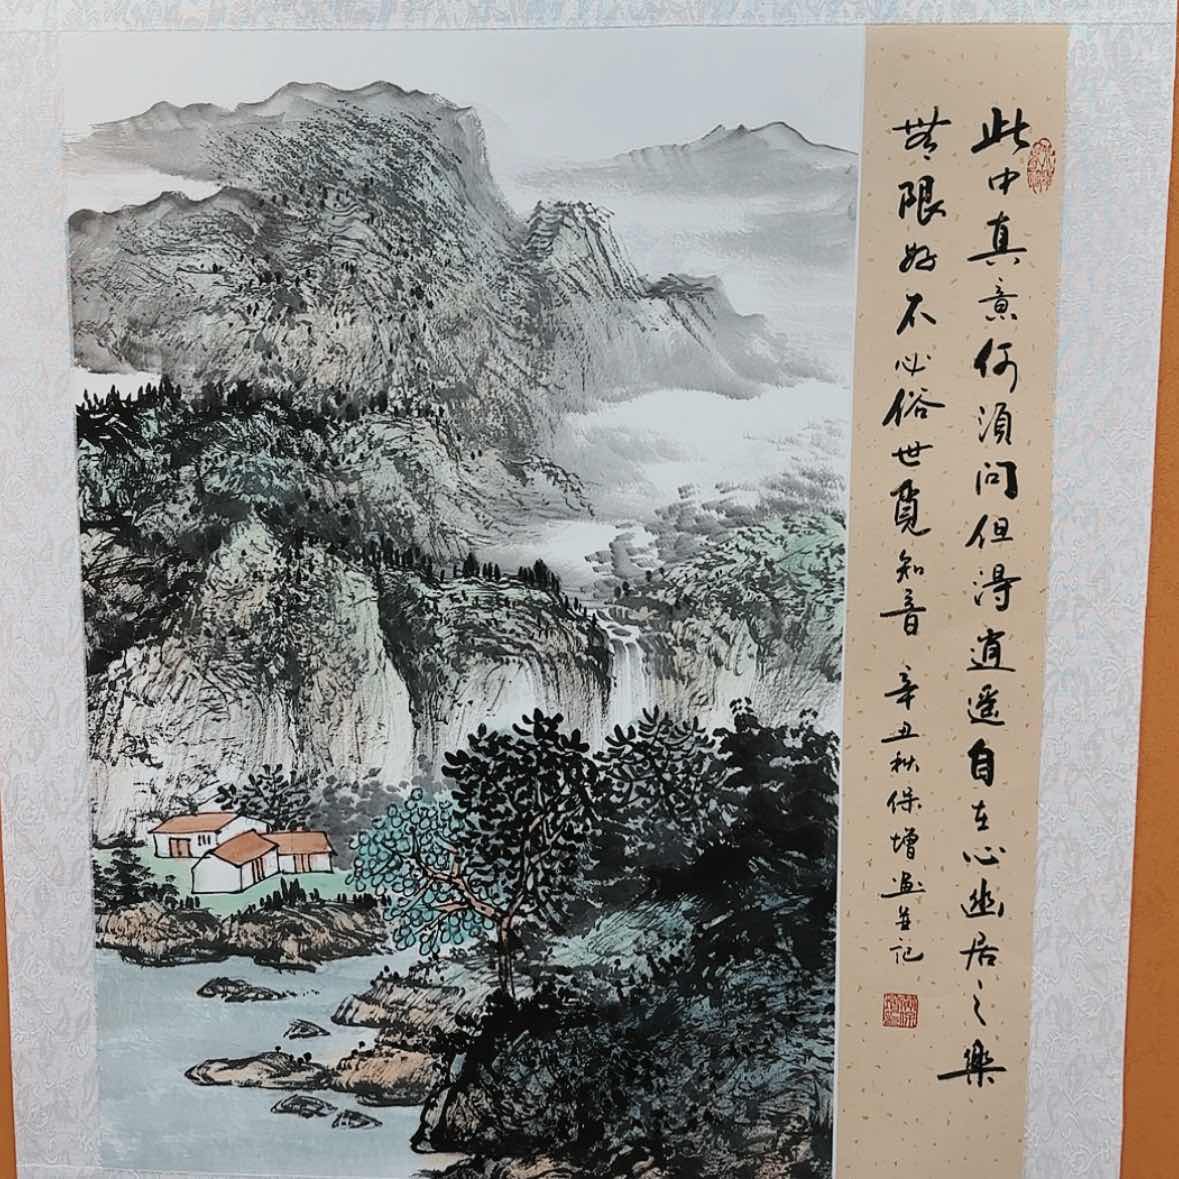 此中真意何须问但得逍遥自在心幽居之樂
無限好不必俗世覓知音 辛丑秋保增畫並記